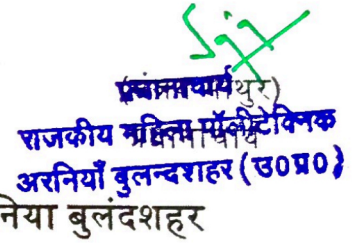 प्रधानाचार्य
राजकीय महिला पॉलीटेक्निक
अरनियाँ बुलन्दशहर (उ०प्र०)
निया बुलंदशहर